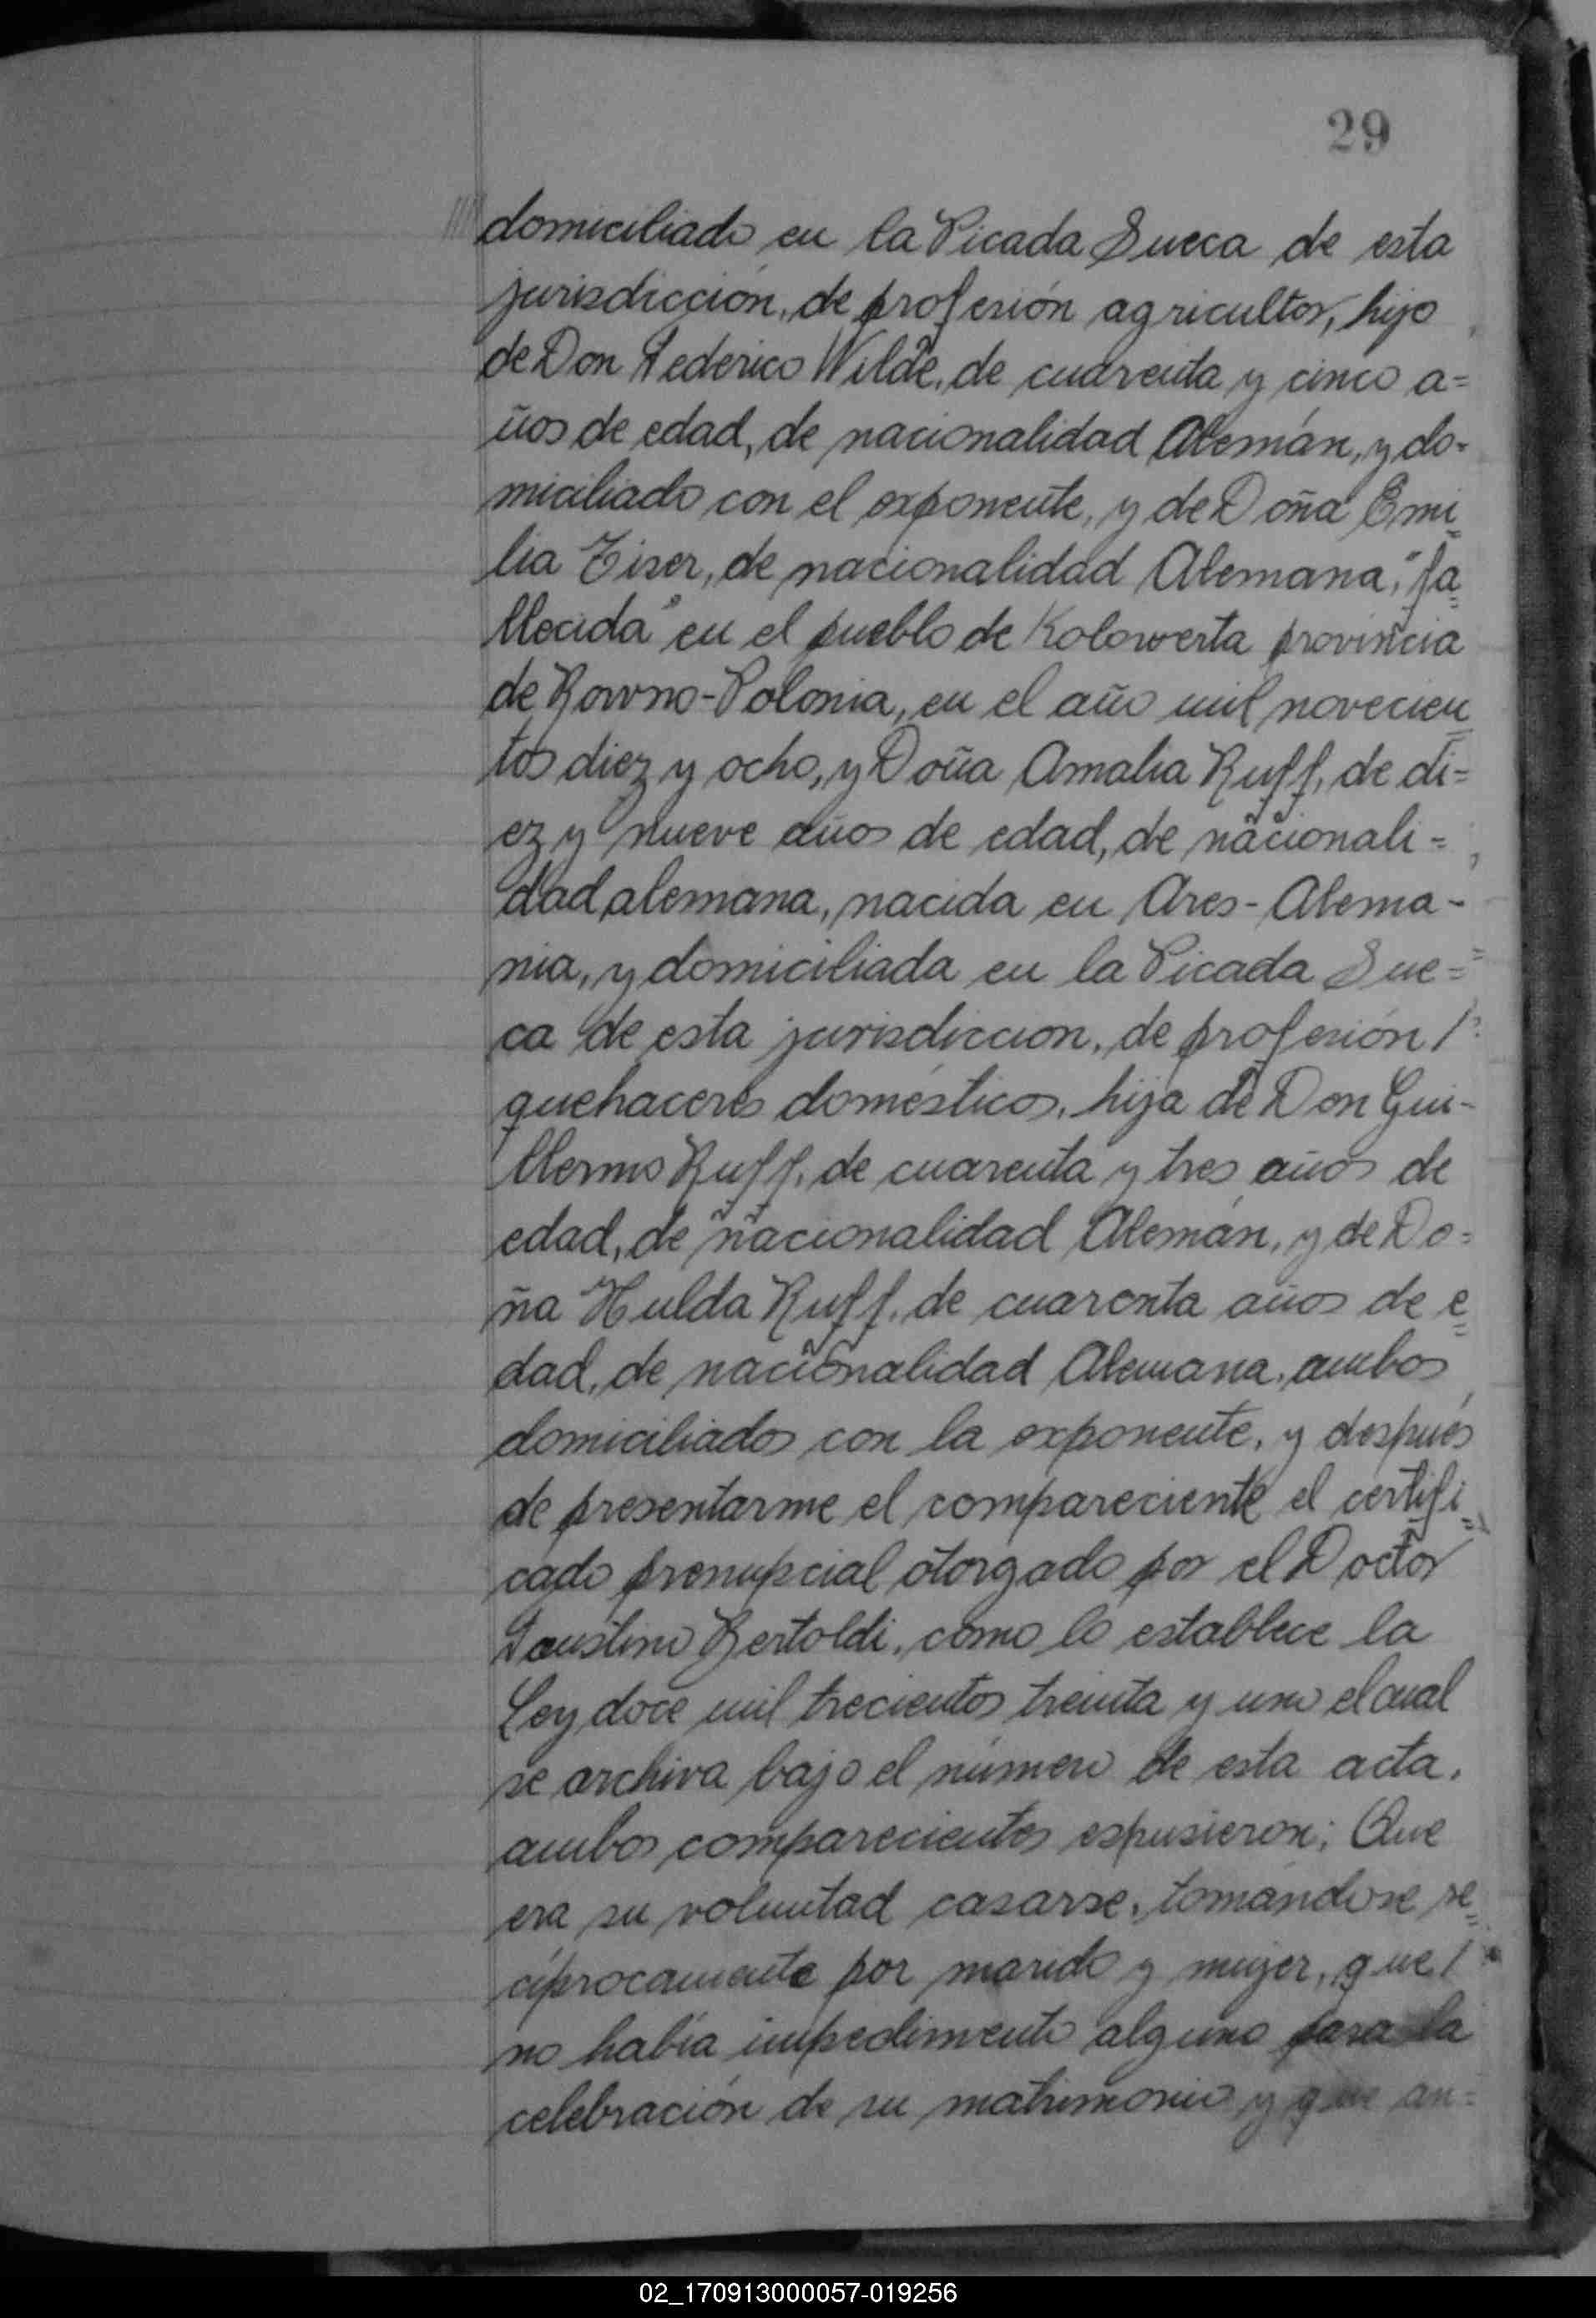 29
domiciliado en la Picada Sueca de esta
jurisdicción, de profesión agricultor, hijo
de Don Federico Wilde, de cuarenta y cinco a=
ños de edad, de nacionalidad Alemán, y do-
miciliado con el exponente, y de Doña Emi
lia Tiser, de nacionalidad Alemana, "fa
llecida" en el pueblo de Kolowerta provincia
de Rowno-Polonia, en el año mil novecien
tos diez y ocho, y Doña Amalia Ruff, de di=
ez y nueve años de edad, de nacionali=
dad alemana, nacida en Ares-Alema-
nia, y domiciliada en la Picada Sue=
ca de esta jurisdiccion, de profesión /
quehaceres domésticos, hija de Don Gui-
llermo Ruff, de cuarenta y tres años de
edad, de nacionalidad Alemán, y de Do=
ña Hulda Ruff, de cuarenta años de e
dad, de nacionalidad Alemana, ambos
domiciliados con la exponente, y después
de presentarme el compareciente el certifi
cado prenupcial otorgado por el Doctor
Faustino Bertoldi, como lo establece la
Ley doce mil trecientos treinta y uno el cual
se archiva bajo el número de esta acta.
ambos comparecientes espusieron: Que
era su voluntad casarse, tomándose re
ciprocamente por marido y mujer, que /
no había impedimento alguno para la
celebración de su matrimonio y que an=
02_170913000057-019256